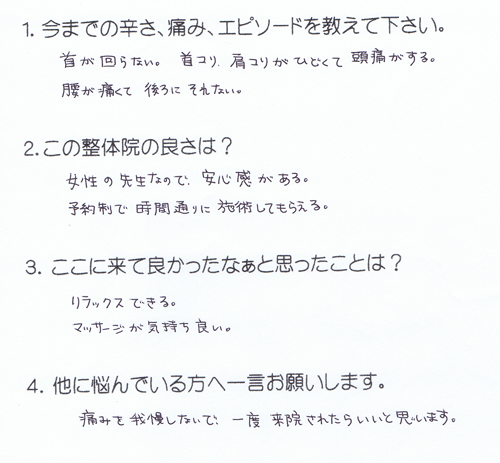 1. 今までの辛さ、痛み、エピソードを教えて下さい。
首が回らない。首コリ、肩コリがひどくて頭痛がする。
腰が痛くて後ろにそれない。
2.この整体院の良さは？
女性の先生なので、安心感がある。
予約制で時間通りに施術してもらえる。
3. ここに来て良かったなぁと思ったことは？
リラックスできる。
マッサージが気持ち良い。
4. 他に悩んでいる方へ一言お願いします。
痛みを我慢しないで、一度来院されたらいいと思います。